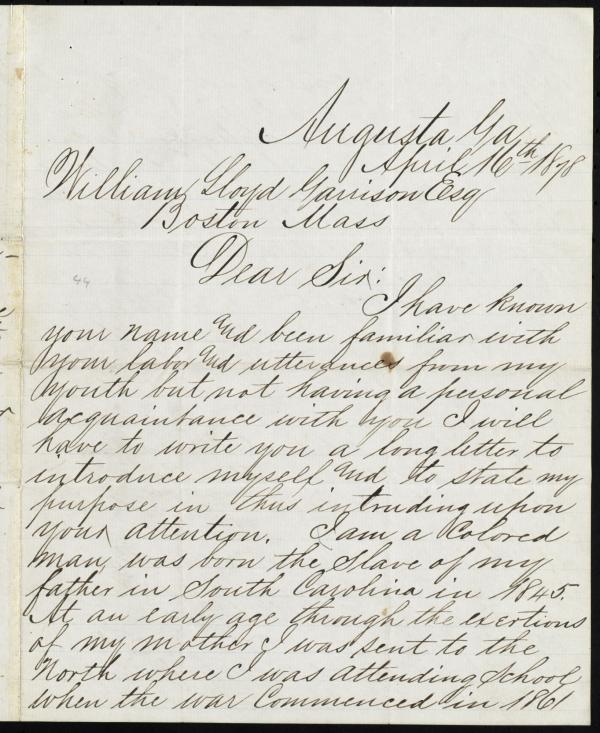 Augusta Ga
April 16th 1878
William Lloyd Garrison Esq
Boston Mass
Dear Sir:
44
I have known
your name and been familiar with
your labor and utterances from my
youth but not having a personal
acquaintance with you I will
have to write you a long letter to
introduce myself and to state my
purpose in thus intruding upon
your attention. I am a Colored
man, was born the slave of my
father in South Carolina in 1845.
At an early age through the exertions
of my mother I was sent to the
North where I was attending School
when the war Commenced in 1861